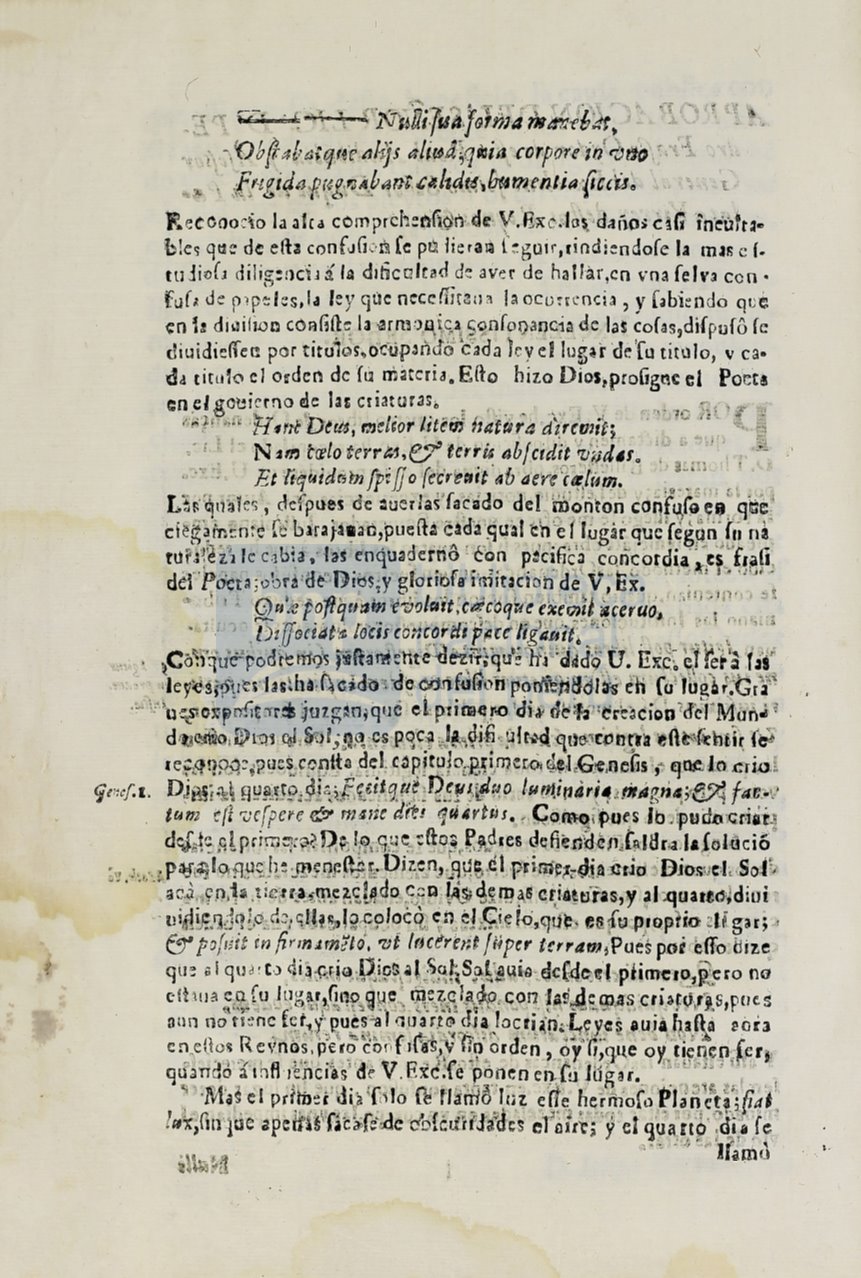 Nulli sua forma manebat,
Obstabatque alijs aliud, quia corpore in vno
Frigida pugnabant calidis, humentia siccis.
Reconocio la alta comprehension de V. Exc. los daños casi incultra-
bles que de esta confusion se pudieran seguir, rindiendose la mas es-
tudiosa diligencia á la dificultad de aver de hallar, en vna selva con-
fusa de papeles, la ley que necessitaua la ocurrencia, y sabiendo que
en la diuision consiste la armonica consonancia de las cosas, dispusô se
diuidiessen por titulos, ocupando cada ley el lugar de su titulo, y ca-
da titulo el orden de su materia. Esto hizo Dios, prosigue el Poeta
en el gouierno de las criaturas.
Hanc Deus, melior litem natura diremit;
Nam cœlo terras, & terris abscidit vndas.
Et liquidum spisso secreuit ab aere cœlum.
Las quales, despues de auerlas sacado del monton confuso en que
ciegamente se barajauan, puesta cada qual en el lugar que segun su na
turaleza le cabia, las enquadernô con pacifica concordia, es frasi
del Poeta; obra de Dios, y gloriosa imitacion de V. Ex.
Quæ postquam evoluit, cæcoque exemit aceruo,
Dissociata locis concordi pace ligauit.
Conque podremos justamente dezir, que ha dado U. Exc. el ser a las
leyes, pues las ha sacado de confusion poniendolas en su lugar. Gra
ues expositores juzgan, que el primero dia de la creacion del Mun-
do crió Dios el Sol, no es poca la dificultad que contra este sentir se
reconoce, pues consta del capitulo primero del Genesis, que lo crio
Genes. 1.
Dios al quarto dia; Fecitque Deus duo luminaria magna; & fac-
tum est vespere & mane dies quartus. Como pues lo pudo criar
desde el primero? De lo que estos Padres defienden saldra la solució
para lo que he menester. Dizen, que el primer dia crio Dios el Sol
acà en la tierra, mezclado con las demas criaturas, y al quarto, diui
uidiendolo de ellas, lo colocò en el Cielo, que es su proprio lugar;
& posuit in firmamẽto, vt lucerent super terram, Pues por esso dize
que al quarto dia crio Dios al Sol, Sol auia desde el primero, pero no
estaua en su lugar, sino que mezclado con las demas criaturas, pues
aun no tiene ser, y pues al quarto dia lo crian. Leyes auia hasta aora
en estos Reynos, pero confusas, y sin orden, oy si, que oy tienen ser,
quando á influencias de V. Exc. se ponen en su lugar.
Mas el primer dia solo se llamò luz este hermoso Planeta; fiat
lux, sin que apenas sacase de obscuridades el aire; y el quarto dia se
llamò